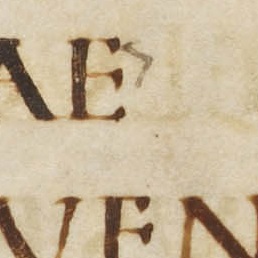 AE
VEN